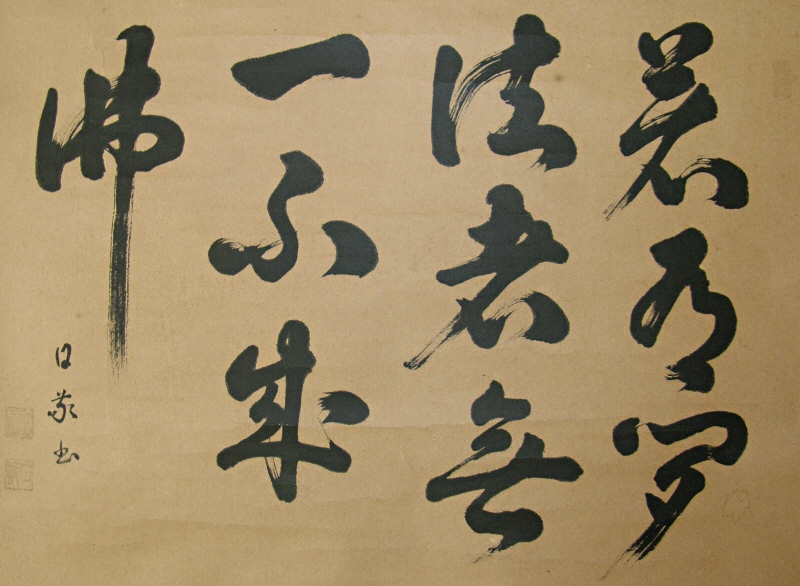 若有聞
法者無
一不成
佛
日敬书